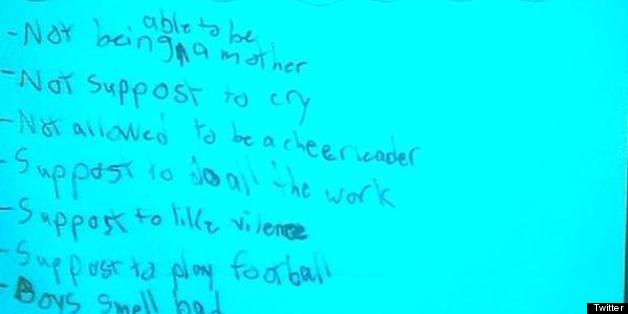 -Not being able to be a mother
-Not suppost to cry
-Not allowed to be a cheerleader
-Suppost to do all the work
-Suppost to like vilence
-Suppost to play football
-Boys smell bad
Twitter